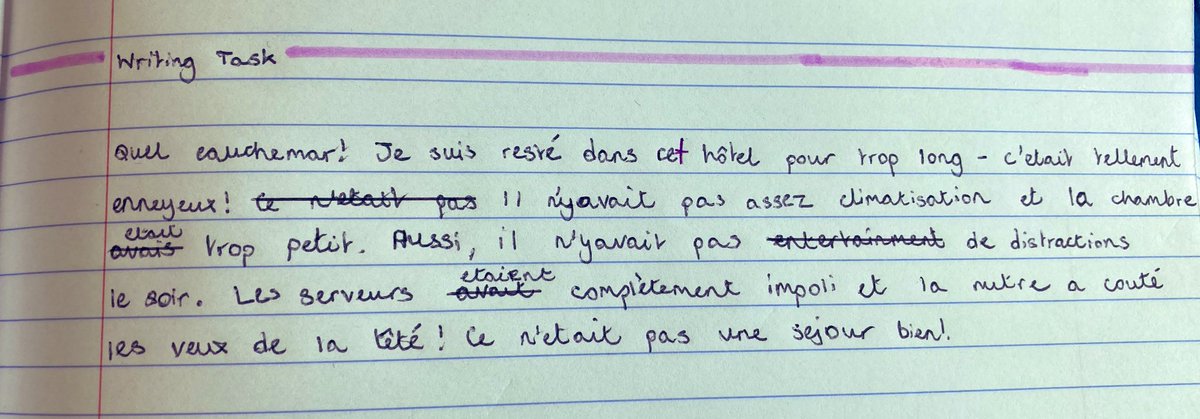 Writing Task
Quel cauchemar! Je suis resté dans cet hôtel pour trop long - c'etait tellement
enneyeux! ce n'etait pas Il n'yavait pas assez climatisation et la chambre
avais etait trop petit. Aussi, il n'yavait pas entertainment de distractions
le soir. Les serveurs avait etaient complètement impoli et la nutre a couté
les yeux de la tété! Ce n'etait pas une sejour bien!